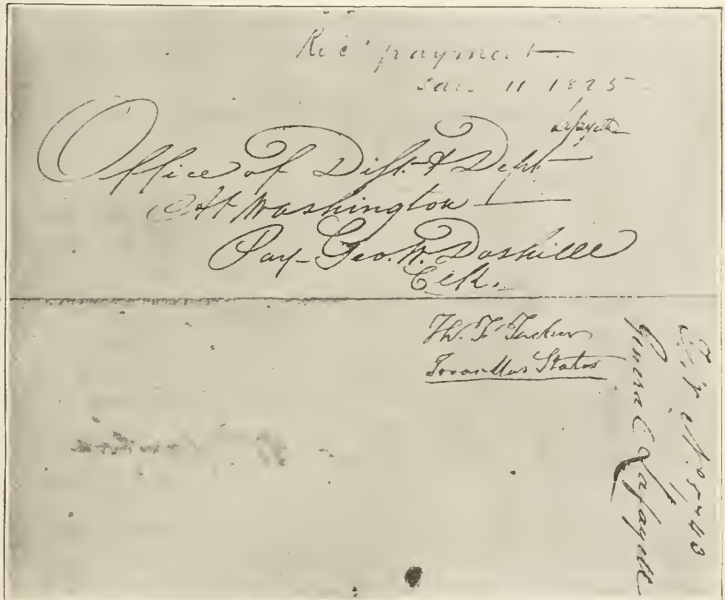 Rec.d payment
Jan. 11 1825
Lafayette
Office of Disct. & Dept
At Washington
Pay Geo. W. Dashiell
Clk.
Th. T. Tucker
States
General Lafayette